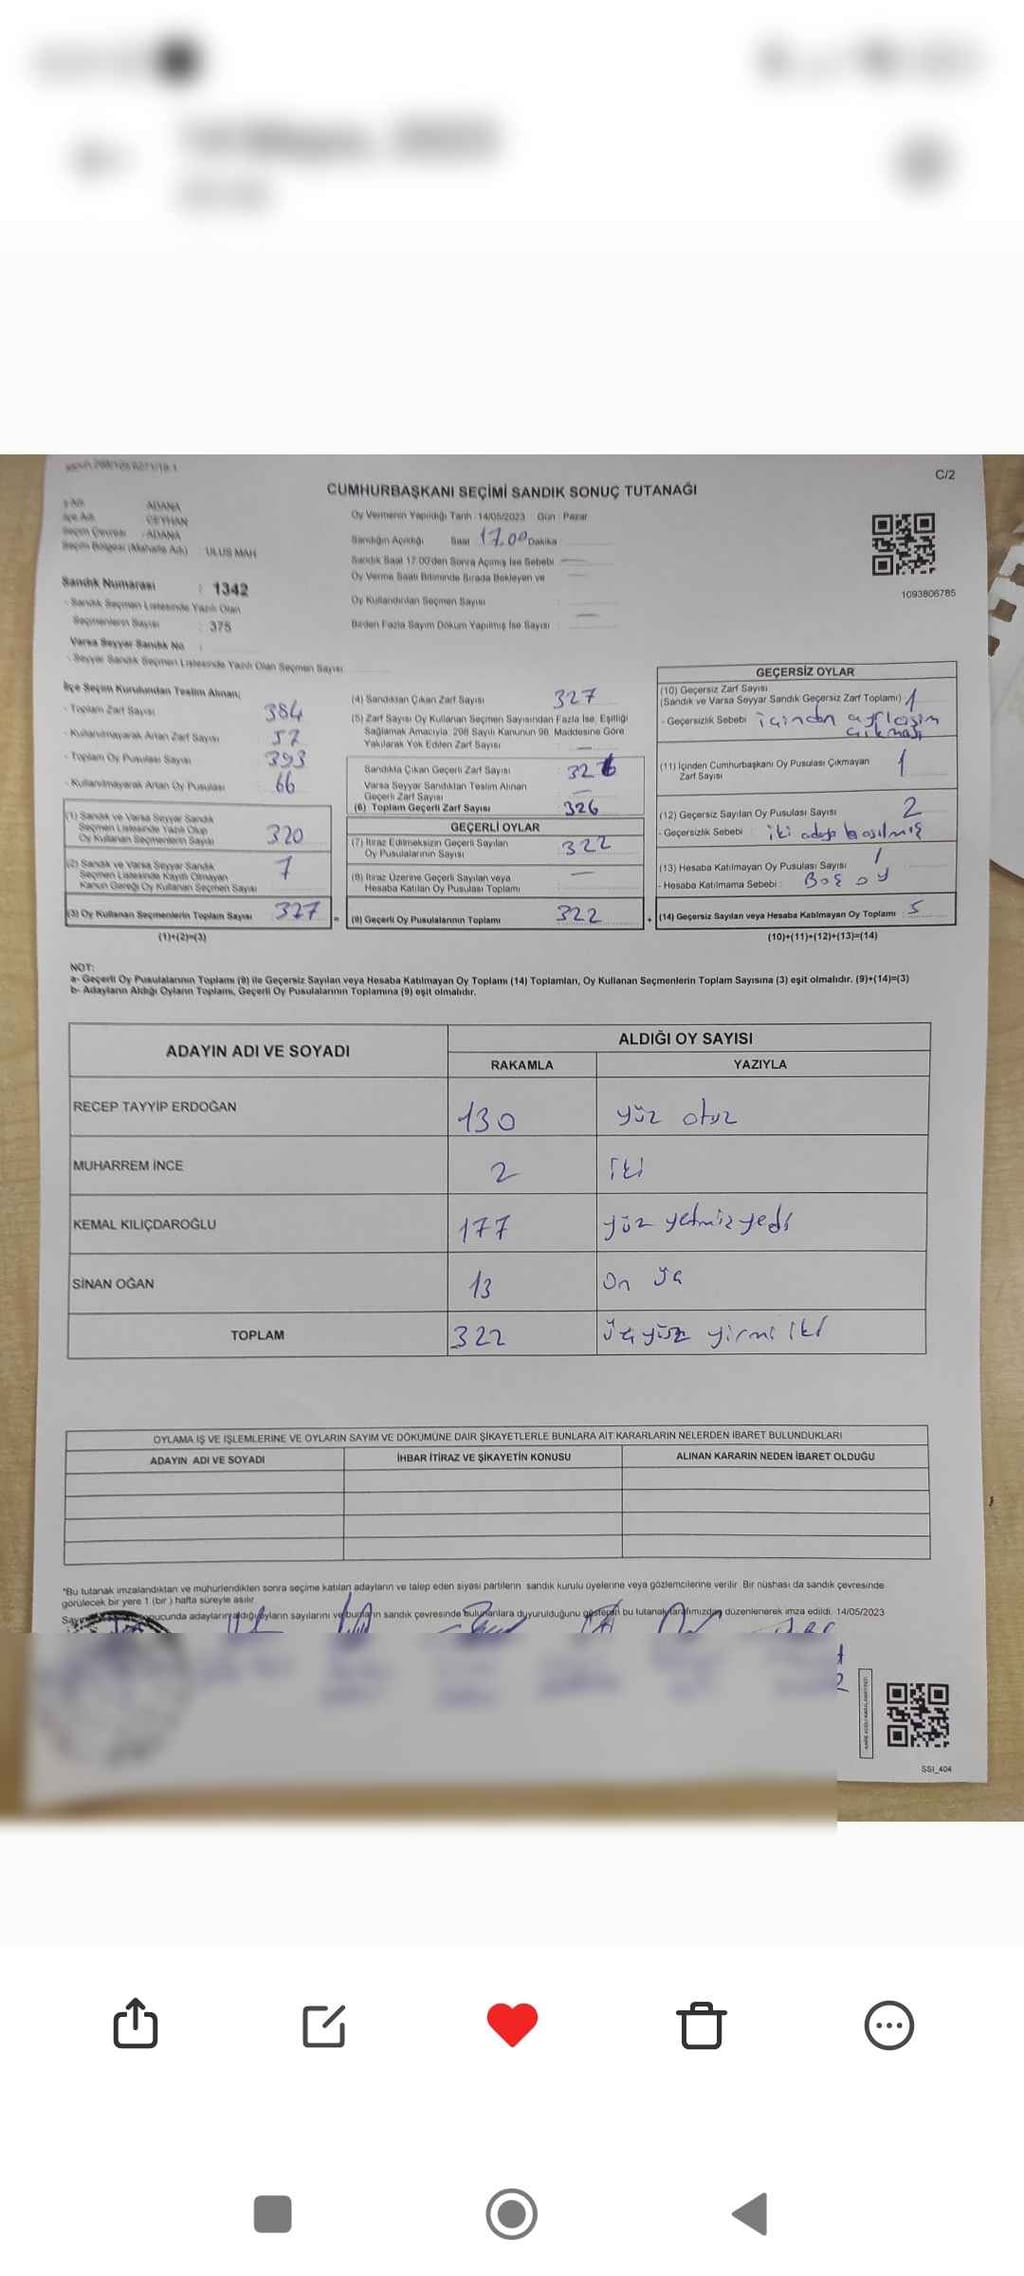 C/2
CUMHURBAŞKANI SEÇİMİ SANDIK SONUÇ TUTANAĞI
ADANA
İlçe Adı CEYHAN
Seçim Çevresi ADANA
Seçim Bölgesi (Mahalle Adı) : ULUS MAH
Sandık Numarası : 1342
- Sandık Seçmen Listesinde Yazılı Olan
Seçmenlerin Sayısı : 375
Varsa Seyyar Sandık No :
- Seyyar Sandık Seçmen Listesinde Yazılı Olan Seçmen Sayısı
Oy Vermenin Yapıldığı Tarih :14/05/2023 Gün : Pazar
Sandığın Açıldığı Saat 17.00 Dakika
Sandık Saat 17:00'den Sonra Açılmış İse Sebebi
Oy Verme Saati Bitiminde Sırada Bekleyen ve
Oy Kullandırılan Seçmen Sayısı
Birden Fazla Sayım Döküm Yapılmış İse Sayısı
1093806785
İlçe Seçim Kurulundan Teslim Alınan;
- Toplam Zarf Sayısı 384
- Kullanılmayarak Artan Zarf Sayısı 57
- Toplam Oy Pusulası Sayısı 393
- Kullanılmayarak Artan Oy Pusulası 66
(1) Sandık ve Varsa Seyyar Sandık
Seçmen Listesinde Yazılı Olup
Oy Kullanan Seçmenlerin Sayısı 320
(2) Sandık ve Varsa Seyyar Sandık
Seçmen Listesinde Kayıtlı Olmayan
Kanun Gereği Oy Kullanan Seçmen Sayısı 7
(3) Oy Kullanan Seçmenlerin Toplam Sayısı 327 =
(1)+(2)=(3)
(4) Sandıktan Çıkan Zarf Sayısı 327
(5) Zarf Sayısı Oy Kullanan Seçmen Sayısından Fazla İse, Eşitliği
Sağlamak Amacıyla, 298 Sayılı Kanunun 98. Maddesine Göre
Yakılarak Yok Edilen Zarf Sayısı
Sandıkta Çıkan Geçerli Zarf Sayısı 326
Varsa Seyyar Sandıktan Teslim Alınan
Geçerli Zarf Sayısı
(6) Toplam Geçerli Zarf Sayısı 326
GEÇERLİ OYLAR
(7) İtiraz Edilmeksizin Geçerli Sayılan
Oy Pusulalarının Sayısı 322
(8) İtiraz Üzerine Geçerli Sayılan veya
Hesaba Katılan Oy Pusulası Toplamı
(9) Geçerli Oy Pusulalarının Toplamı 322 +
GEÇERSİZ OYLAR
(10) Geçersiz Zarf Sayısı
(Sandık ve Varsa Seyyar Sandık Geçersiz Zarf Toplamı) 1
- Geçersizlik Sebebi içinden
çıkması
(11) İçinden Cumhurbaşkanı Oy Pusulası Çıkmayan
Zarf Sayısı 1
(12) Geçersiz Sayılan Oy Pusulası Sayısı 2
- Geçersizlik Sebebi : iki adaya basılmış
(13) Hesaba Katılmayan Oy Pusulası Sayısı 1
- Hesaba Katılmama Sebebi : Boş oy
(14) Geçersiz Sayılan veya Hesaba Katılmayan Oy Toplamı : 5
(10)+(11)+(12)+(13)=(14)
NOT:
a- Geçerli Oy Pusulalarının Toplamı (9) ile Geçersiz Sayılan veya Hesaba Katılmayan Oy Toplamı (14) Toplamları, Oy Kullanan Seçmenlerin Toplam Sayısına (3) eşit olmalıdır. (9)+(14)=(3)
b- Adayların Aldığı Oyların Toplamı, Geçerli Oy Pusulalarının Toplamına (9) eşit olmalıdır.
ADAYIN ADI VE SOYADI
ALDIĞI OY SAYISI
RAKAMLA YAZIYLA
RECEP TAYYİP ERDOĞAN 130 yüz otuz
MUHARREM İNCE 2 iki
KEMAL KILIÇDAROĞLU 177 yüz yetmiş yedi
SİNAN OĞAN 13 On üç
TOPLAM 322 üç yüz yirmi iki
OYLAMA İŞ VE İŞLEMLERİNE VE OYLARIN SAYIM VE DÖKÜMÜNE DAİR ŞİKAYETLERLE BUNLARA AİT KARARLARIN NELERDEN İBARET BULUNDUKLARI
ADAYIN ADI VE SOYADI İHBAR İTİRAZ VE ŞİKAYETİN KONUSU ALINAN KARARIN NEDEN İBARET OLDUĞU
*Bu tutanak imzalandıktan ve mühürlendikten sonra seçime katılan adayların ve talep eden siyasi partilerin sandık kurulu üyelerine veya gözlemcilerine verilir. Bir nüshası da sandık çevresinde
görülecek bir yere 1 (bir ) hafta süreyle asılır.
adayların aldığı oyların sayılarını ve bunların sandık çevresinde bulunanlara duyurulduğunu gösteren bu tutanak tarafımızdan düzenlenerek imza edildi. 14/05/2023
SSI_404